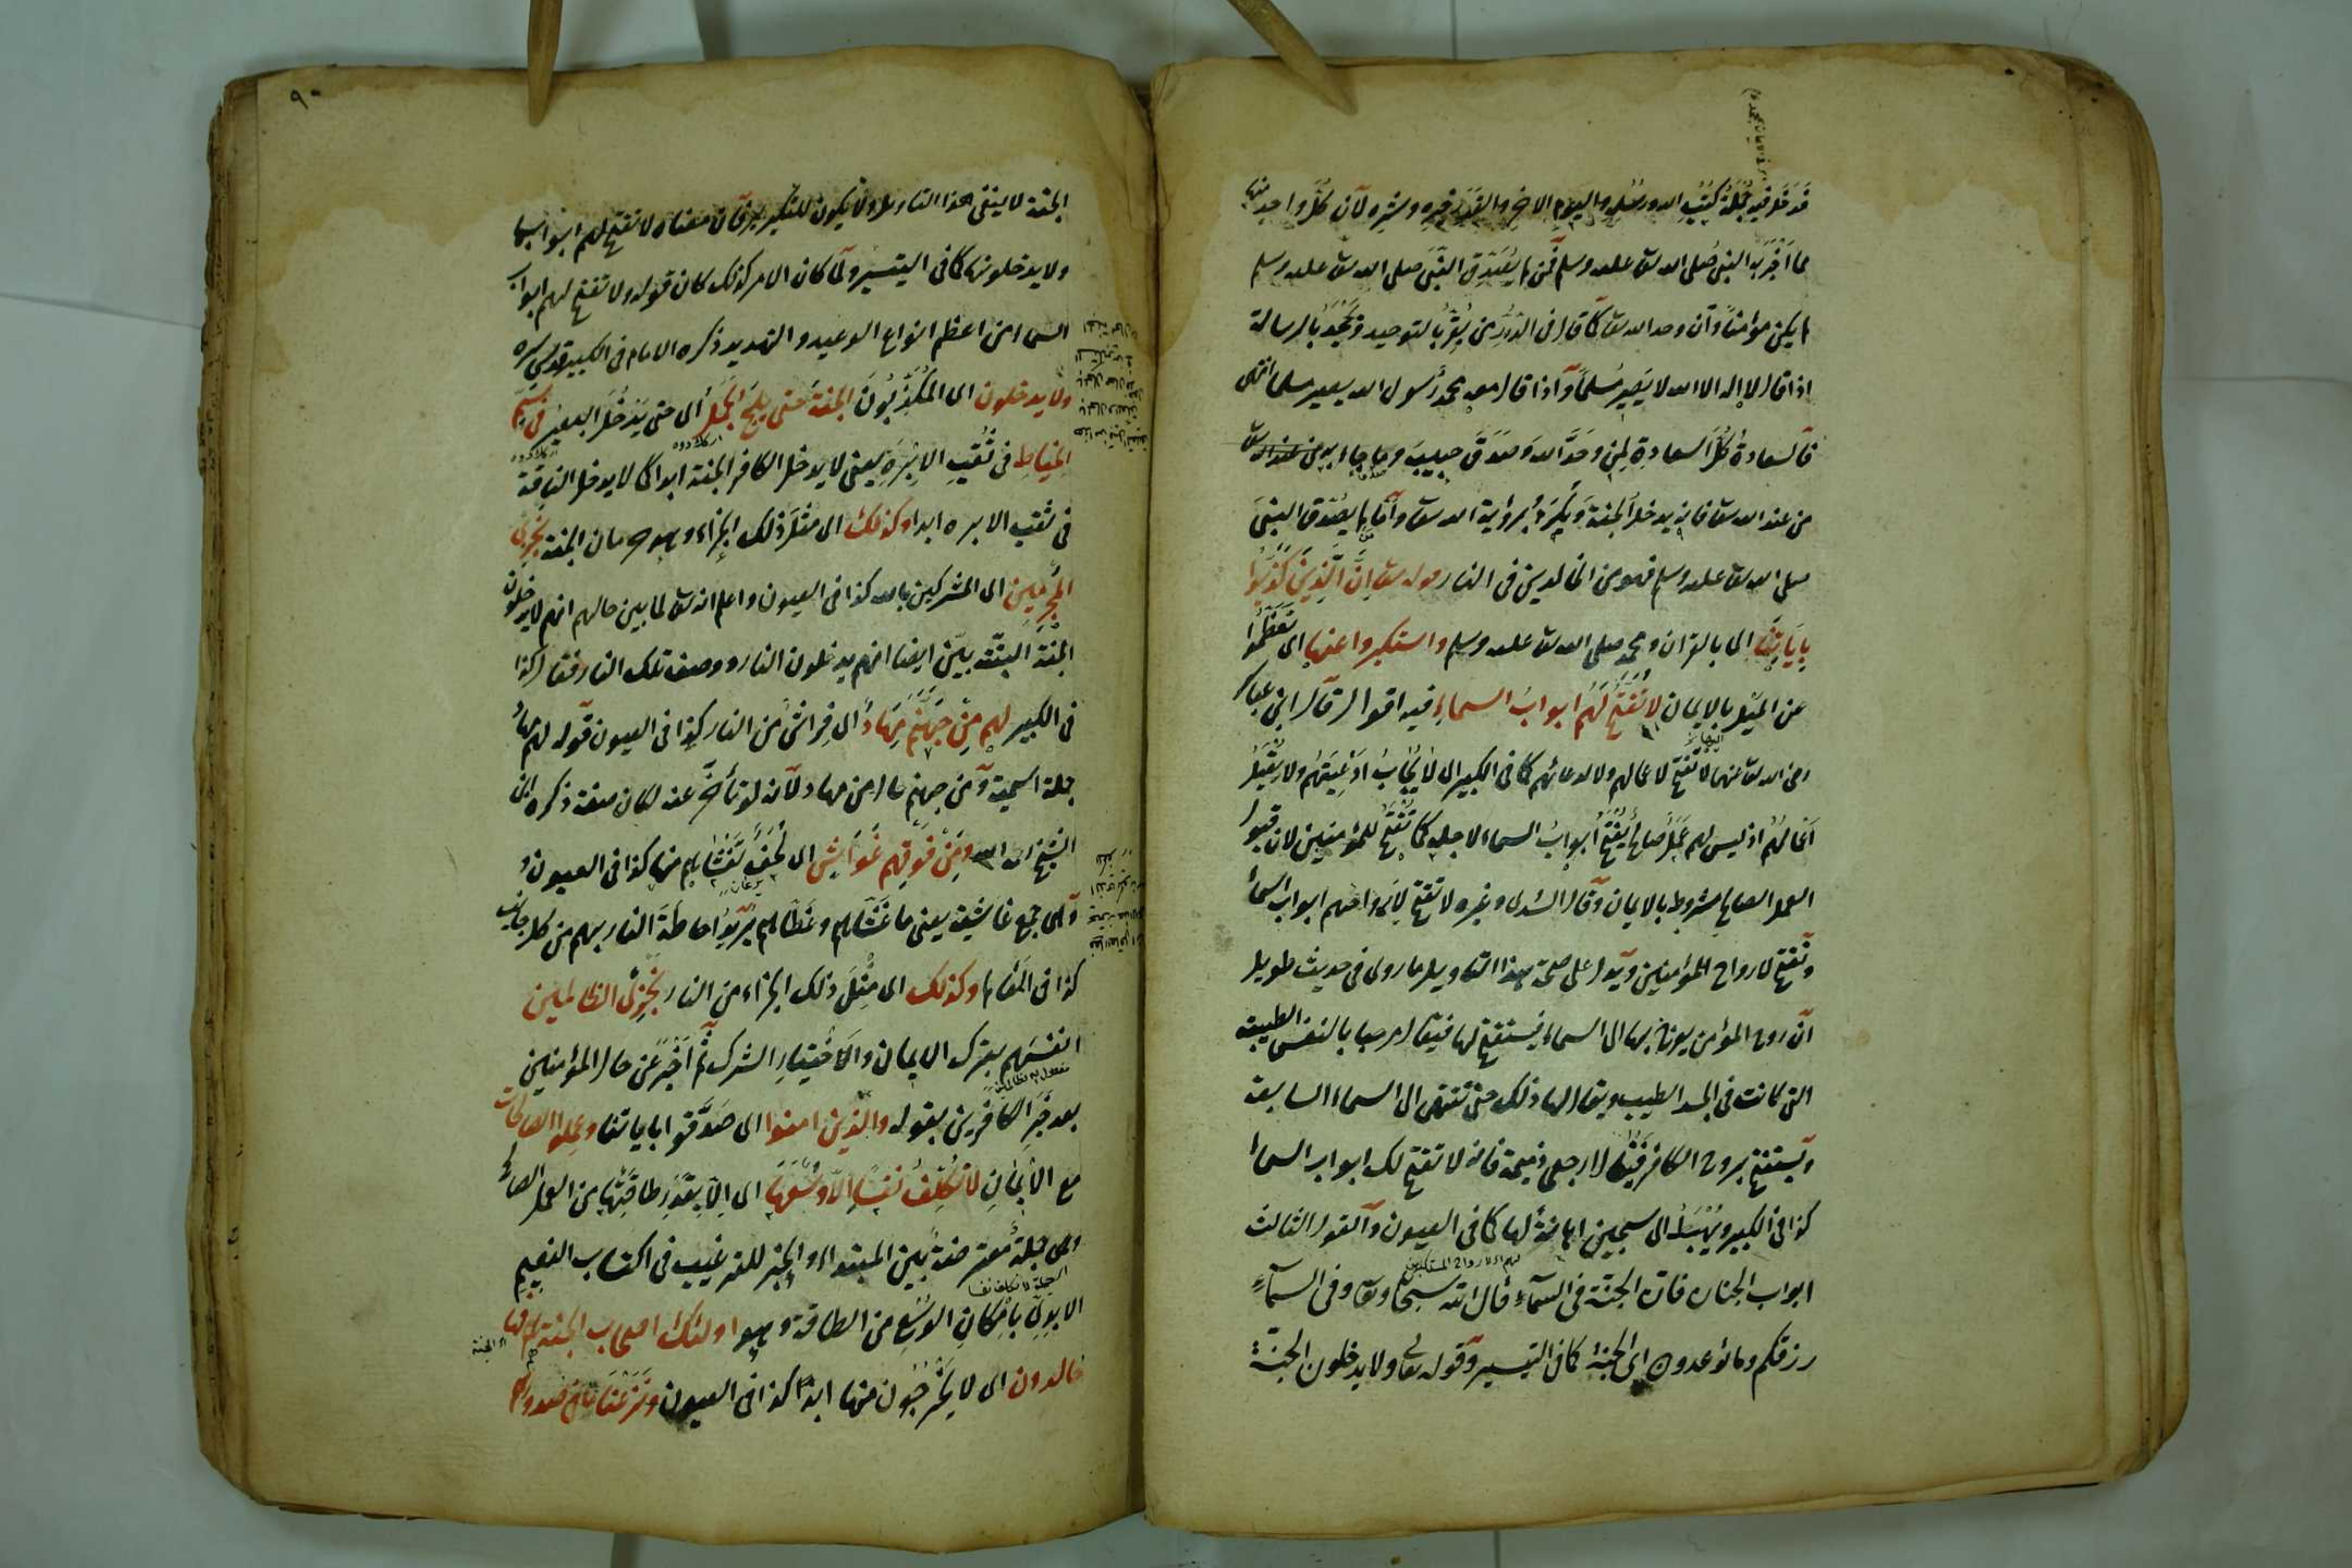 فدخل فيه جملة كتب الله ورسله واليوم الاخر والقدر خيره وشره لان كل واحد منها
مما اخبر به النبي صلى الله تعالى عليه وسلم فمن لم يصدق النبي صلى الله تعالى عليه وسلم
لم يكن مؤمنا وان وحد الله تعالى كما قال في الدرر من يقر بالتوحيد ويجحد بالرسالة
اذا قال لا اله الا الله لا يصير مسلما واذا قال معه محمد رسول الله يصير مسلما انتهى
فالسعادة كل السعادة لمن وحد الله وصدق حبيبه وما جاء به من عند الله تعالى
من عند الله تعالى فانه يدخل الجنة ويكرم برؤية الله تعالى واما من لم يصدق النبي
صلى الله تعالى عليه وسلم فهو من الخالدين في النار قوله تعالى ان الذين كذبوا
باياتنا اى بالقران ومحمد صلى الله تعالى عليه وسلم واستكبروا عنها اى تعظموا
عن الميل بالايمان لا تفتح لهم ابواب السماء فيه اقوال قال ابن عباس
رضى الله تعالى عنهما لا تفتح لاعمالهم ولا لدعائهم كما في الكبير اى لا يجاب ادعيتهم ولا يقبل
اعمالهم اذ ليس لهم عمل صالح يفتح ابواب السماء لاجله كما تفتح للمؤمنين لان قبول
العمل الصالح مشروط بالايمان وقال السدى وغيره لا تفتح لارواحهم ابواب السماء
وتفتح لارواح المؤمنين ويدل على صحة هذا التاويل ما روى في حديث طويل
ان روح المؤمن يعرج بها الى السماء فيستفتح لها فيقال مرحبا بالنفس الطيبة
التى كانت في الجسد الطيب ويقال لها ذلك حتى تنتهى الى السماء السابعة
ويستفتح بروح الكافر فيقال لا ارجعى ذميمة فانه لا تفتح لك ابواب السماء
كذا في الكبير ويهبط الى سجين اهانة لها كما في العيون والقول الثالث
ابواب الجنان فان الجنة في السماء قال الله سبحانه وتعالى وفى السماء
رزقكم وما توعدون اى الجنة كما في التيسير وقوله تعالى ولا يدخلون الجنة
٩٠
الجنة لا ينفى هذا التاويل ولا يكون للتكرير فان معناه لا تفتح لهم ابوابها
ولا يدخلونها كما في التيسير ولما كان الامر كذلك كان قوله ولا تفتح لهم ابواب
السماء من اعظم انواع الوعيد والتهديد ذكره الامام في الكبير قدس سره
ولا يدخلون اى المكذبون الجنة حتى يلج الجمل اى حتى يدخل البعير في سم
الخياط في ثقب الابرة يعنى لا يدخل الكافر الجنة ابدا كما لا يدخل الناقة
في ثقب الابره ابدا وكذلك اى مثل ذلك الجزاء وهو حرمان الجنة نجزى
المجرمين اى المشركين بالله كذا في العيون واعلم انه تعالى لما بين حالهم انهم لا يدخلون
الجنة البتة بين ايضا انهم يدخلون النار ووصف تلك النار فقال كذا
في الكبير لهم من جهنم مهاد اى فراش من النار كذا في العيون قوله لهم مهاد
جملة اسمية ومن جهنم حال من مهاد لانه لو تأخر عنه لكان صفة ذكره ابن
الشيخ رحمه الله ومن فوقهم غواش اى لحف تغشاهم منها كذا في العيون
وهى جمع غاشية يعنى ما غشاهم وغطاهم يريد احاطة النار بهم من كل جانب
كذا في المعالم وكذلك اى مثل ذلك الجزاء من النار نجزى الظالمين
انفسهم بترك الايمان والاختيار الشرك ثم اخبر عن حال المؤمنين
بعد خبر الكافرين بقوله والذين امنوا اى صدقوا باياتنا وعملوا الصالحات
مع الايمان لا نكلف نفسا الا وسعها اى الا بقدر طاقتها من العمل الصالح
وهى جملة معترضة بين المبتداء والخبر للترغيب في اكتساب النعيم
الابدى بامكان الوسع من الطاقة وهو اولئك اصحاب الجنة هم فيها
خالدون اى لا يخرجون منها ابدا كذا في العيون ونزعنا ما في صدورهم